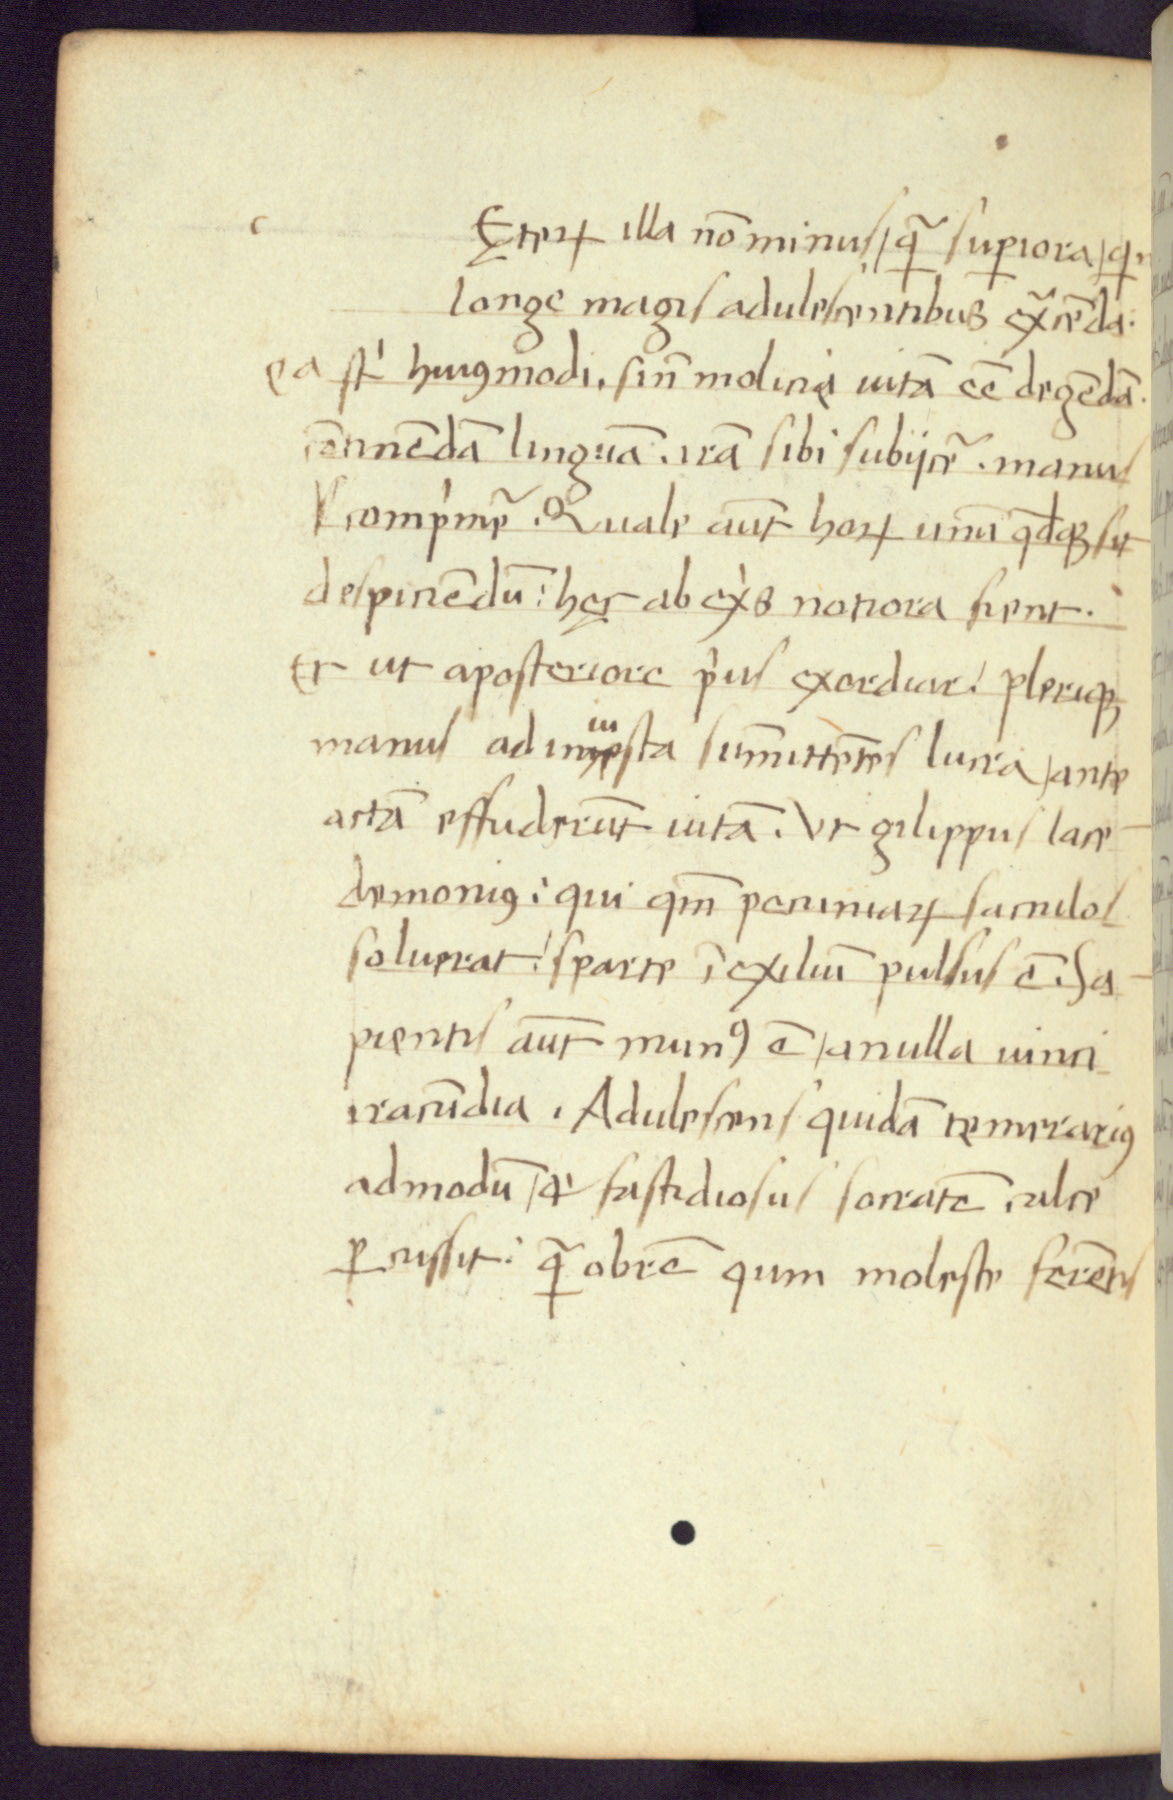 c Ęteꝝ illa nō minus / q̃ suꝑiora / qn
longe magis adulescentibus exc̃enda.
ea st' huiꝰmodi. sin̄ molicia uitā eē degēdā.
cōtinēdā linguā. irā sibi subijcẽ. manus
comp'mẽ. Quale aut̄ hoꝝ unū qdqꝫ sit
despiciēdū: hęc ab ex'is notiora fient.
Et ut aposteriore p'us exordiar: pleriqꝫ
manus ad iniusta sum̄ittētes lucra / ante
actā effuderūt uitā. Vt gilippus lace-
demoniꝰ: qui qm̄ pecuniaꝝ sacculos
soluerat: sparte ī exiliū pulsus ē. Sa-
pientis aut̄ munꝰ ē / a nulla uinci
iracūdia. Adulescens quidā temerariꝰ
admodū / & fastidiosus socratē calce
ꝑcussit: q̃ obrē qum moleste ferētis